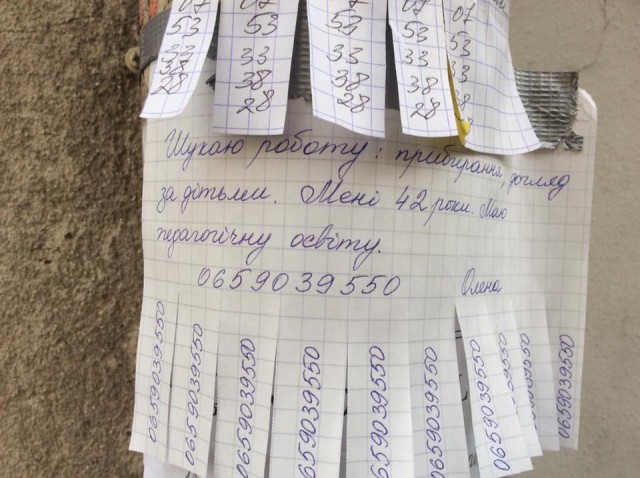 07 07 07 07
53 53 53 53 53
33 33 33 33 33
38 38 38 38 38
28 28 28 28
Шукаю роботу: прибирання, догляд
за дітьми. Мені 42 роки. Маю
педагогічну освіту.
0659039550 Олена
0659039550
0659039550
0659039550
0659039550
0659039550
0659039550
0659039550
0659039550